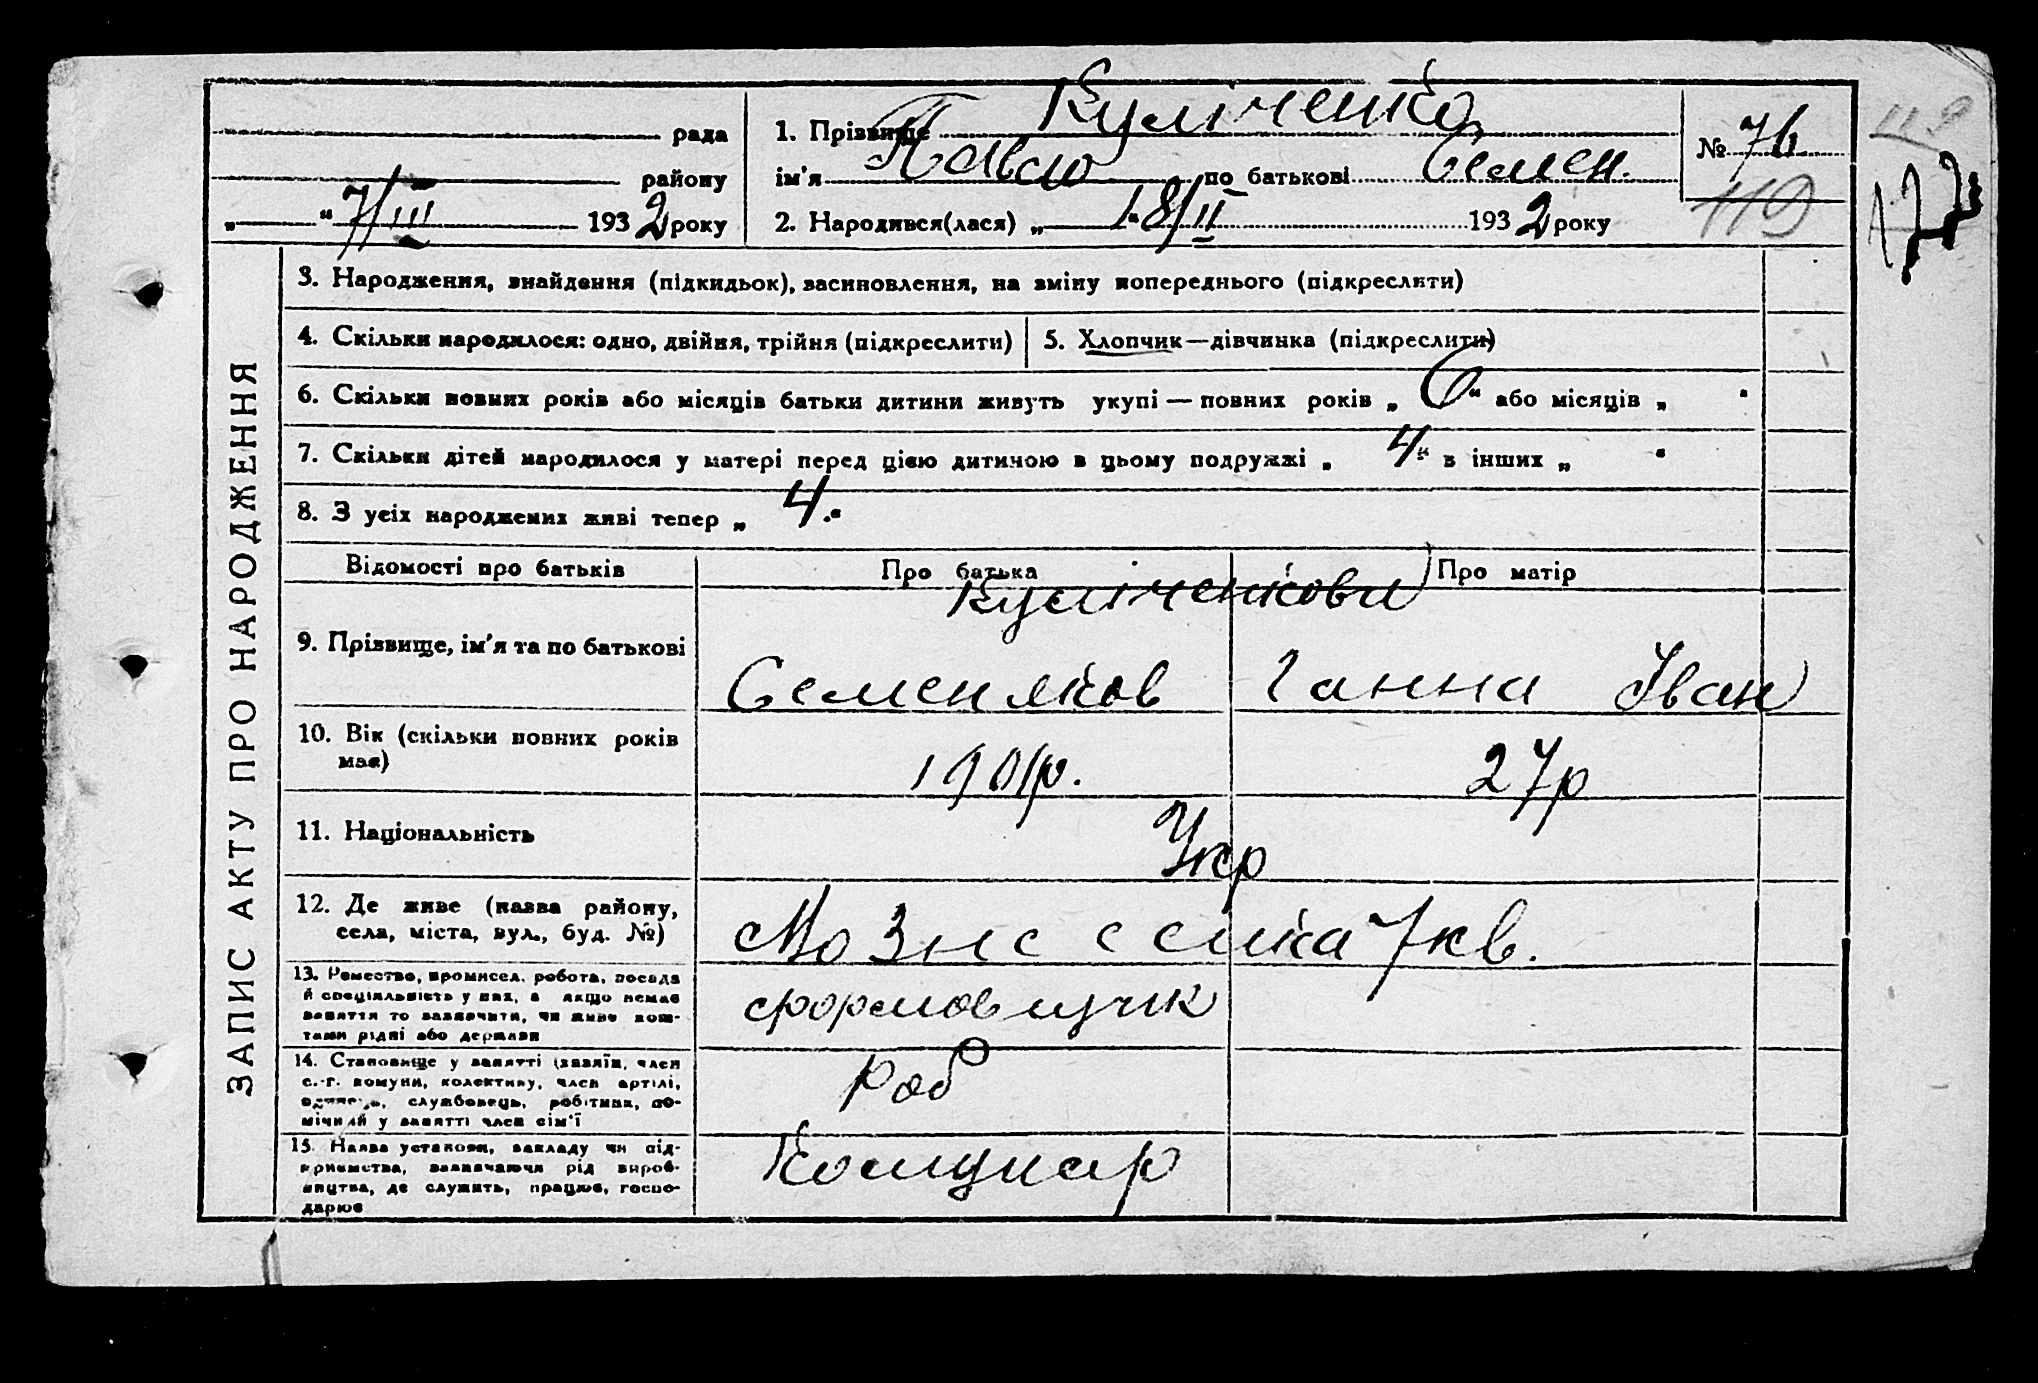 рада
району
„ “ 7/III 1932 року
1. Прізвище Куліченко
ім'я Павло по батькові Семен.
2. Народився(лася) „ 18/II 1932 року
№ 76
119
ЗАПИС АКТУ ПРО НАРОДЖЕННЯ
3. Народження, знайдення (підкидьок), засиновлення, на зміну попереднього (підкреслити)
4. Скільки народилося: одно, двійня, трійня (підкреслити)
5. Хлопчик—дівчинка (підкреслити)
6. Скільки повних років або місяців батьки дитини живуть укупі — повних років „ 6 “ або місяців „ “
7. Скільки дітей народилося у матері перед цією дитиною в цьому подружжі „ 4 “ в інших „ “
8. З усіх народжених живі тепер „ 4. “
Відомості про батьків
Про батька
Про матір
Куліченкови
9. Прізвище, ім'я та по батькові
Семен Яков
Ганна Іван
10. Вік (скільки повних років має)
1901р.
27р
11. Національність
Укр
12. Де живе (назва району,
села, міста, вул., буд. №)
7 кв.
13. Ремество, промисел, робота, посада
й спеціяльність у них, а якщо немає
заняття то зазначити, чи живе кош-
тами рідні або держави
формовщик
14. Становище у занятті (хазяїн, член
с.-г. комуни, колективу, член артілі,
одинець, службовець, робітник, по-
мічний у занятті член сім'ї
Роб
15. Назва установи, закладу чи під-
приємства, зазначаючи рід вироб-
ництва, де служить, працює, госпо-
дарює